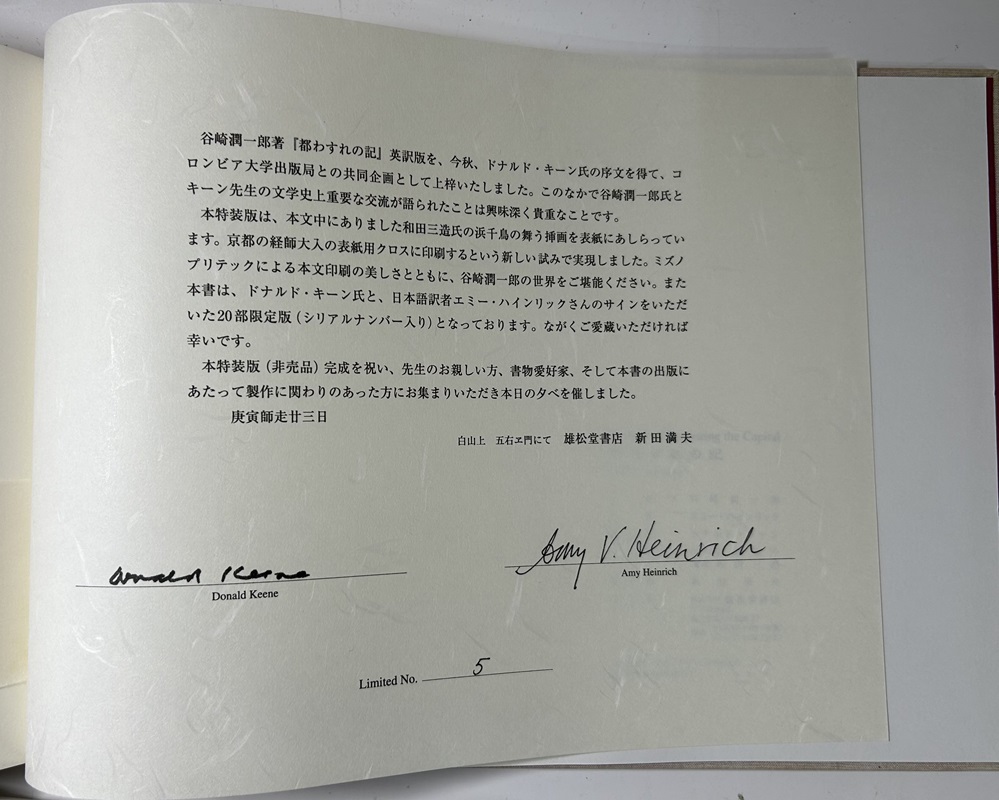 谷崎潤一郎著『都わすれの記』英訳版を、今秋、ドナルド・キーン氏の序文を得て、コ
ロンビア大学出版局との共同企画として上梓いたしました。このなかで谷崎潤一郎氏と
キーン先生の文学史上重要な交流が語られたことは興味深く貴重なことです。
本特装版は、本文中にありました和田三造氏の浜千鳥の舞う挿画を表紙にあしらってい
ます。京都の経師大入の表紙用クロスに印刷するという新しい試みで実現しました。ミズノ
プリテックによる本文印刷の美しさとともに、谷崎潤一郎の世界をご堪能ください。また
本書は、ドナルド・キーン氏と、日本語訳者エミー・ハインリックさんのサインをいただ
いた20部限定版（シリアルナンバー入り）となっております。ながくご愛蔵いただければ
幸いです。
本特装版（非売品）完成を祝い、先生のお親しい方、書物愛好家、そして本書の出版に
あたって製作に関わりのあった方にお集まりいただき本日の夕べを催しました。
庚寅師走廿三日
白山上 五右ヱ門にて 雄松堂書店 新田満夫
Donald Keene
Donald Keene
Amy V. Heinrich
Amy Heinrich
Limited No. 5